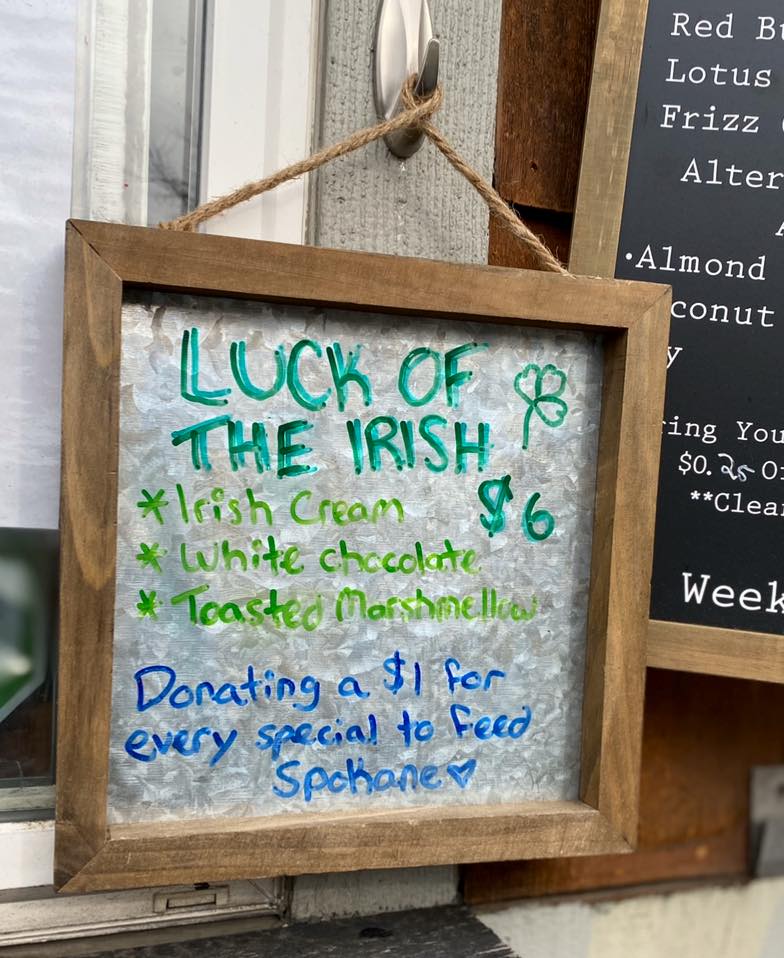 LUCK OF
THE IRISH
* Irish Cream
$6
* White chocolate
* Toasted Marshmellow
Donating a $1 for
every special to feed
Spokane
Red
Lotus
Frizz
•Almond
$0.25
Week